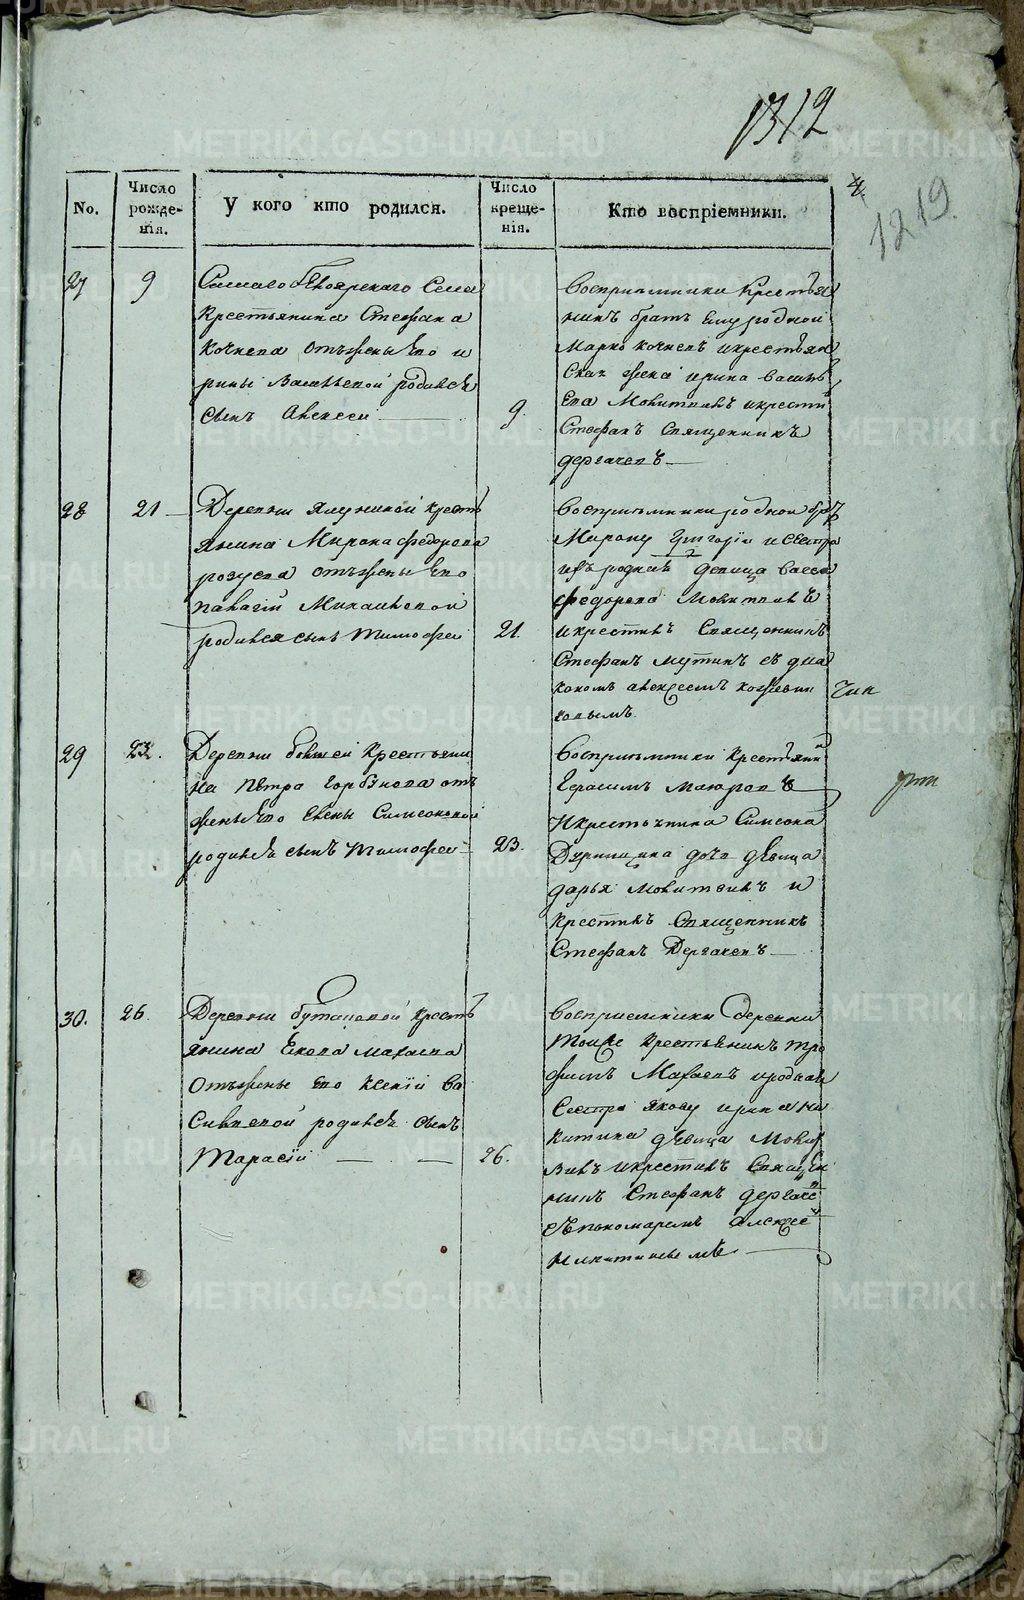 1312
1219.
No.
Число рожде-нія.
У кого кто родился.
Число креще-нія.
Кто воспріемники.
27
9
Самаго Белоярского Села
Крестьянина Стефана
Кочнева отъ жены Его и
рины Васильевой родился
сынъ Алексеи
9.
Восприемники Крестья
нинъ братъ Ему родной
Марко Кочневъ и крестьян
ская жена ирина Василь
ева Молитвилъ и крести
Стефанъ Священникъ
дергачевъ
28
21
Деревни крестъ
янина Мирона Федорова
отъ жены Его
Михаиловой
родился сынъ Тимофеи
21.
Восприемники родной братъ
Мирону Григорiи и Сестра
ихъ родная девица Васса
Федорова Молитвилъ
и крестилъ Священникъ
Стефанъ съ диа
кономъ алексеемъ кожевни
ковымъ.
29
23.
Деревни Крестьяни
на Петра Горбунова отъ
жены Его Елены Симеоновой
родился сынъ Тимофеи
23.
Восприемники Крестьянин
Герасимъ
И крестьянина Симеона
дочь девица
дарья Молитвилъ и
крестилъ Священникъ
Стефанъ Дергачевъ
30.
26.
Деревни крестъ
янина Якова Махаева
отъ жены Его Ксенiи Ва
сильевой родился сынъ
Тарасiи
26.
Восприемники деревни
Тоиже Крестьянинъ Тро
фимъ Махаевъ и родная
Сестра Якову ирина Ни
китина девица Молит
вилъ и крестилъ Священ
никъ Стефанъ дергачев
съ пономаремъ алексее
Никитиныемъ
METRIKI.GASO-URAL.RU